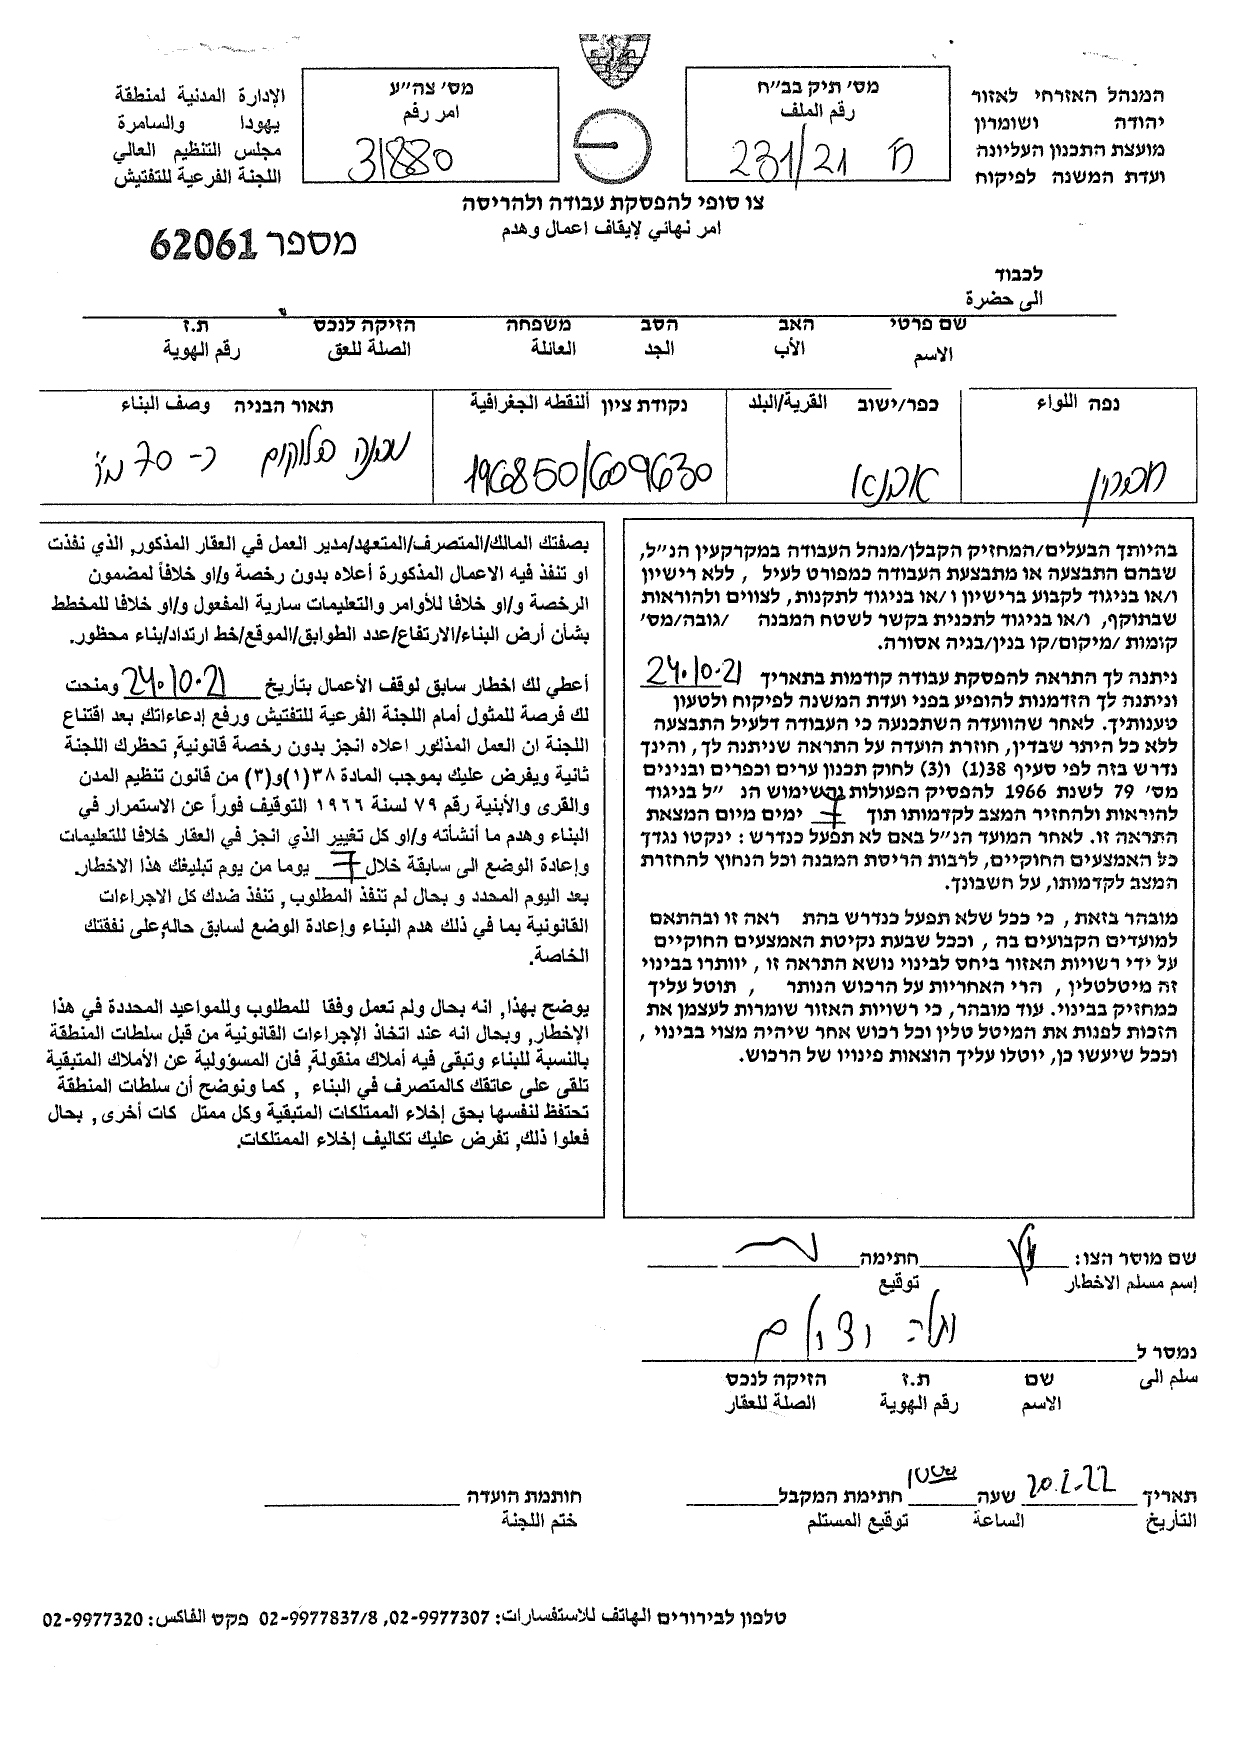 המנהל האזרחי לאזור
יהודה ושומרון
מועצת התכנון העליונה
ועדת המשנה לפיקוח
מס׳ תיק בב״ח
رقم الملف
ח 231/21
מס׳ צה״ע
امر رقم
31880
الإدارة المدنية لمنطقة
يهودا والسامرة
مجلس التنظيم العالي
اللجنة الفرعية للتفتيش
צו סופי להפסקת עבודה ולהריסה
امر نهائي لإيقاف اعمال وهدم
מספר 62061
לכבוד
الى حضرة
שם פרטי האב הסב משפחה הזיקה לנכס ת.ז
الاسم الأب الجد العائلة الصلة للعق رقم الهوية
نفه اللواء
חברון
כפר/ישוב القرية/البلد
נקודת ציון ألنقطه الجغرافية
196850/609630
תאור הבניה وصف البناء
מבנה בלוקים כ- 70 מ״ר
בהיותך הבעלים/המחזיק הקבלן/מנהל העבודה במקרקעין הנ״ל,
שבהם התבצעה או מתבצעת העבודה כמפורט לעיל , ללא רישיון
ו/או בניגוד לקבוע ברישיון ו /או בניגוד לתקנות, לצווים ולהוראות
שבתוקף, ו/או בניגוד לתכנית בקשר לשטח המבנה /גובה/מס׳
קומות /מיקום/קו בנין/בניה אסורה.
ניתנה לך התראה להפסקת עבודה קודמות בתאריך 24.10.21
וניתנה לך הזדמנות להופיע בפני ועדת המשנה לפיקוח ולטעון
טענותיך. לאחר שהוועדה השתכנעה כי העבודה דלעיל התבצעה
ללא כל היתר שבדין, חוזרת הועדה על התראה שניתנה לך, והינך
נדרש בזה לפי סעיף 38(1) ו(3) לחוק תכנון ערים וכפרים ובנינים
מס׳ 79 לשנת 1966 להפסיק הפעולות והשימוש הנ ״ל בניגוד
להוראות ולהחזיר המצב לקדמותו תוך 7 ימים מיום המצאת
התראה זו. לאחר המועד הנ״ל באם לא תפעל כנדרש : ינקטו נגדך
כל האמצעים החוקיים, לרבות הריסת המבנה וכל הנחוץ להחזרת
המצב לקדמותו, על חשבונך.
מובהר בזאת , כי ככל שלא תפעל כנדרש בהת ראה זו ובהתאם
למועדים הקבועים בה , וככל שבעת נקיטת האמצעים החוקיים
על ידי רשויות האזור ביחס לבינוי נושא התראה זו , יוותרו בבינוי
זה מיטלטלין , הרי האחריות על הרכוש הנותר , תוטל עליך
כמחזיק בבינוי. עוד מובהר, כי רשויות האזור שומרות לעצמן את
הזכות לפנות את המיטל טלין וכל רכוש אחר שיהיה מצוי בבינוי ,
וככל שיעשו כן, יוטלו עליך הוצאות פינויו של הרכוש.
بصفتك المالك/المتصرف/المتعهد/مدير العمل في العقار المذكور, الذي نفذت
او تنفذ فيه الاعمال المذكورة أعلاه بدون رخصة و/او خلافاً لمضمون
الرخصة و/او خلافا للأوامر والتعليمات سارية المفعول و/او خلافا للمخطط
بشأن أرض البناء/الارتفاع/عدد الطوابق/الموقع/خط ارتداد/بناء محظور.
أعطي لك اخطار سابق لوقف الأعمال بتاريخ 24.10.21 ومنحت
لك فرصة للمثول أمام اللجنة الفرعية للتفتيش ورفع إدعاءاتك, بعد اقتناع
اللجنة ان العمل المذكور اعلاه انجز بدون رخصة قانونية, تحظرك اللجنة
ثانية ويفرض عليك بموجب المادة ٣٨(١)و(٣) من قانون تنظيم المدن
والقرى والأبنية رقم ٧٩ لسنة ١٩٦٦ التوقيف فوراً عن الاستمرار في
البناء وهدم ما أنشأته و/او كل تغيير الذي انجز في العقار خلافا للتعليمات
وإعادة الوضع الى سابقة خلال 7 يوما من يوم تبليغك هذا الاخطار.
بعد اليوم المحدد و بحال لم تنفذ المطلوب, تنفذ ضدك كل الاجراءات
القانونية بما في ذلك هدم البناء وإعادة الوضع لسابق حاله,على نفقتك
الخاصة.
يوضح بهذا, انه بحال ولم تعمل وفقا للمطلوب وللمواعيد المحددة في هذا
الإخطار, وبحال انه عند اتخاذ الإجراءات القانونية من قبل سلطات المنطقة
بالنسبة للبناء وتبقى فيه أملاك منقولة, فان المسؤولية عن الأملاك المتبقية
تلقى على عاتقك كالمتصرف في البناء , كما ونوضح أن سلطات المنطقة
تحتفظ لنفسها بحق إخلاء الممتلكات المتبقية وكل ممتل كات أخرى, بحال
فعلوا ذلك, تفرض عليك تكاليف إخلاء الممتلكات.
שם מוסר הצו: חתימה
إسم مسلم الاخطار توقيع
נמסר ל
سلم الى
שם ת.ז הזיקה לנכס
الاسم رقم الهوية الصلة للعقار
תאריך 20.2.22 שעה חתימת המקבל
التأريخ الساعة توقيع المستلم
חותמת הועדה
ختم اللجنة
טלפון לבירורים الهاتف للاستفسارات: 02-9977307, 02-9977837/8 פקס الفاكس: 02-9977320